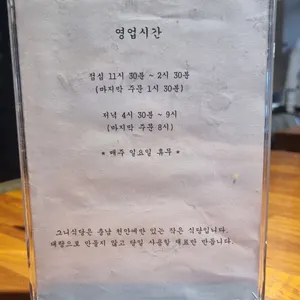 영업시간
점심 11시 30분 ~ 2시 30분
(마지막 주문 1시 30분)
저녁 4시 30분 ~ 9시
(마지막 주문 8시)
* 매주 일요일 휴무 *
그니식당은 충남 천안에만 있는 작은 식당입니다.
대량으로 만들지 않고 당일 사용할 재료만 만듭니다.